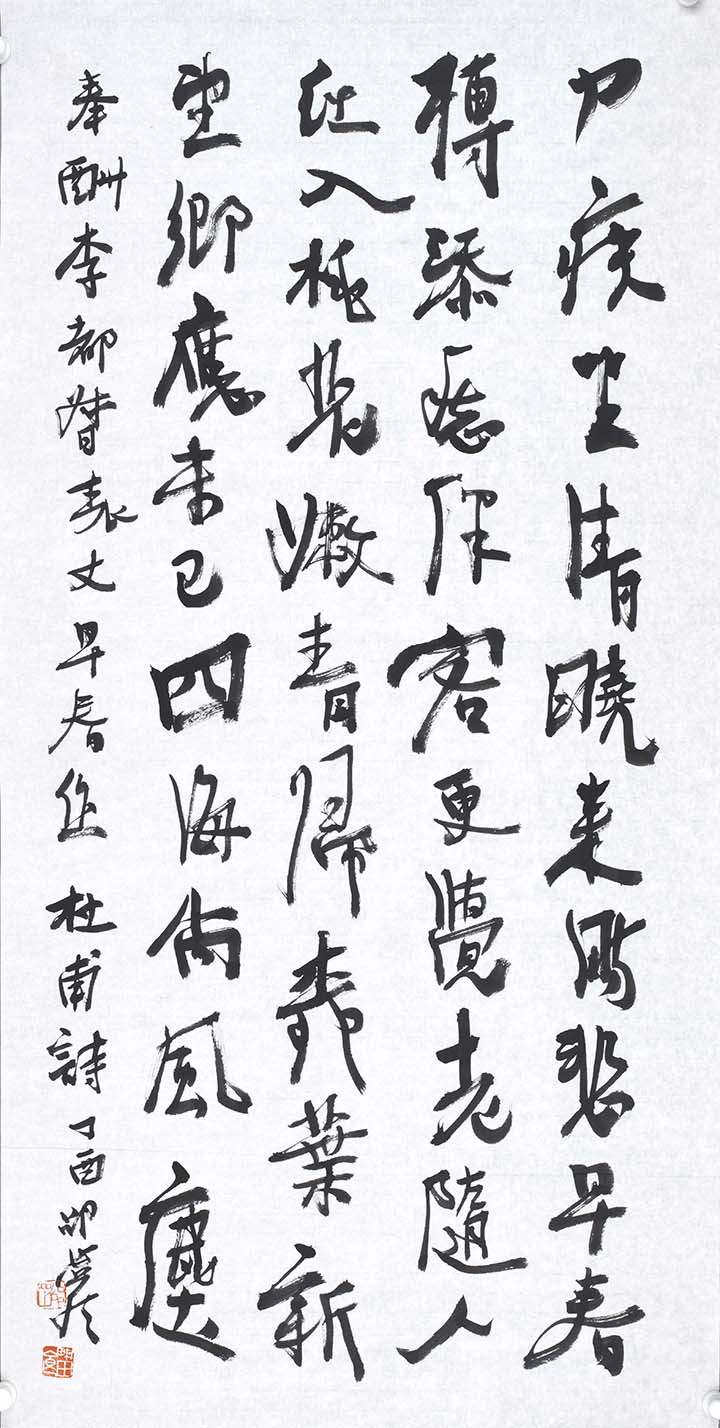 力疾坐清曉來時悲早春
轉添愁伴客更覺老隨人
紅入桃花嫩青歸柳葉新
望鄉應未已四海尚風塵
奉酬李都督表丈早春作杜甫詩丁酉